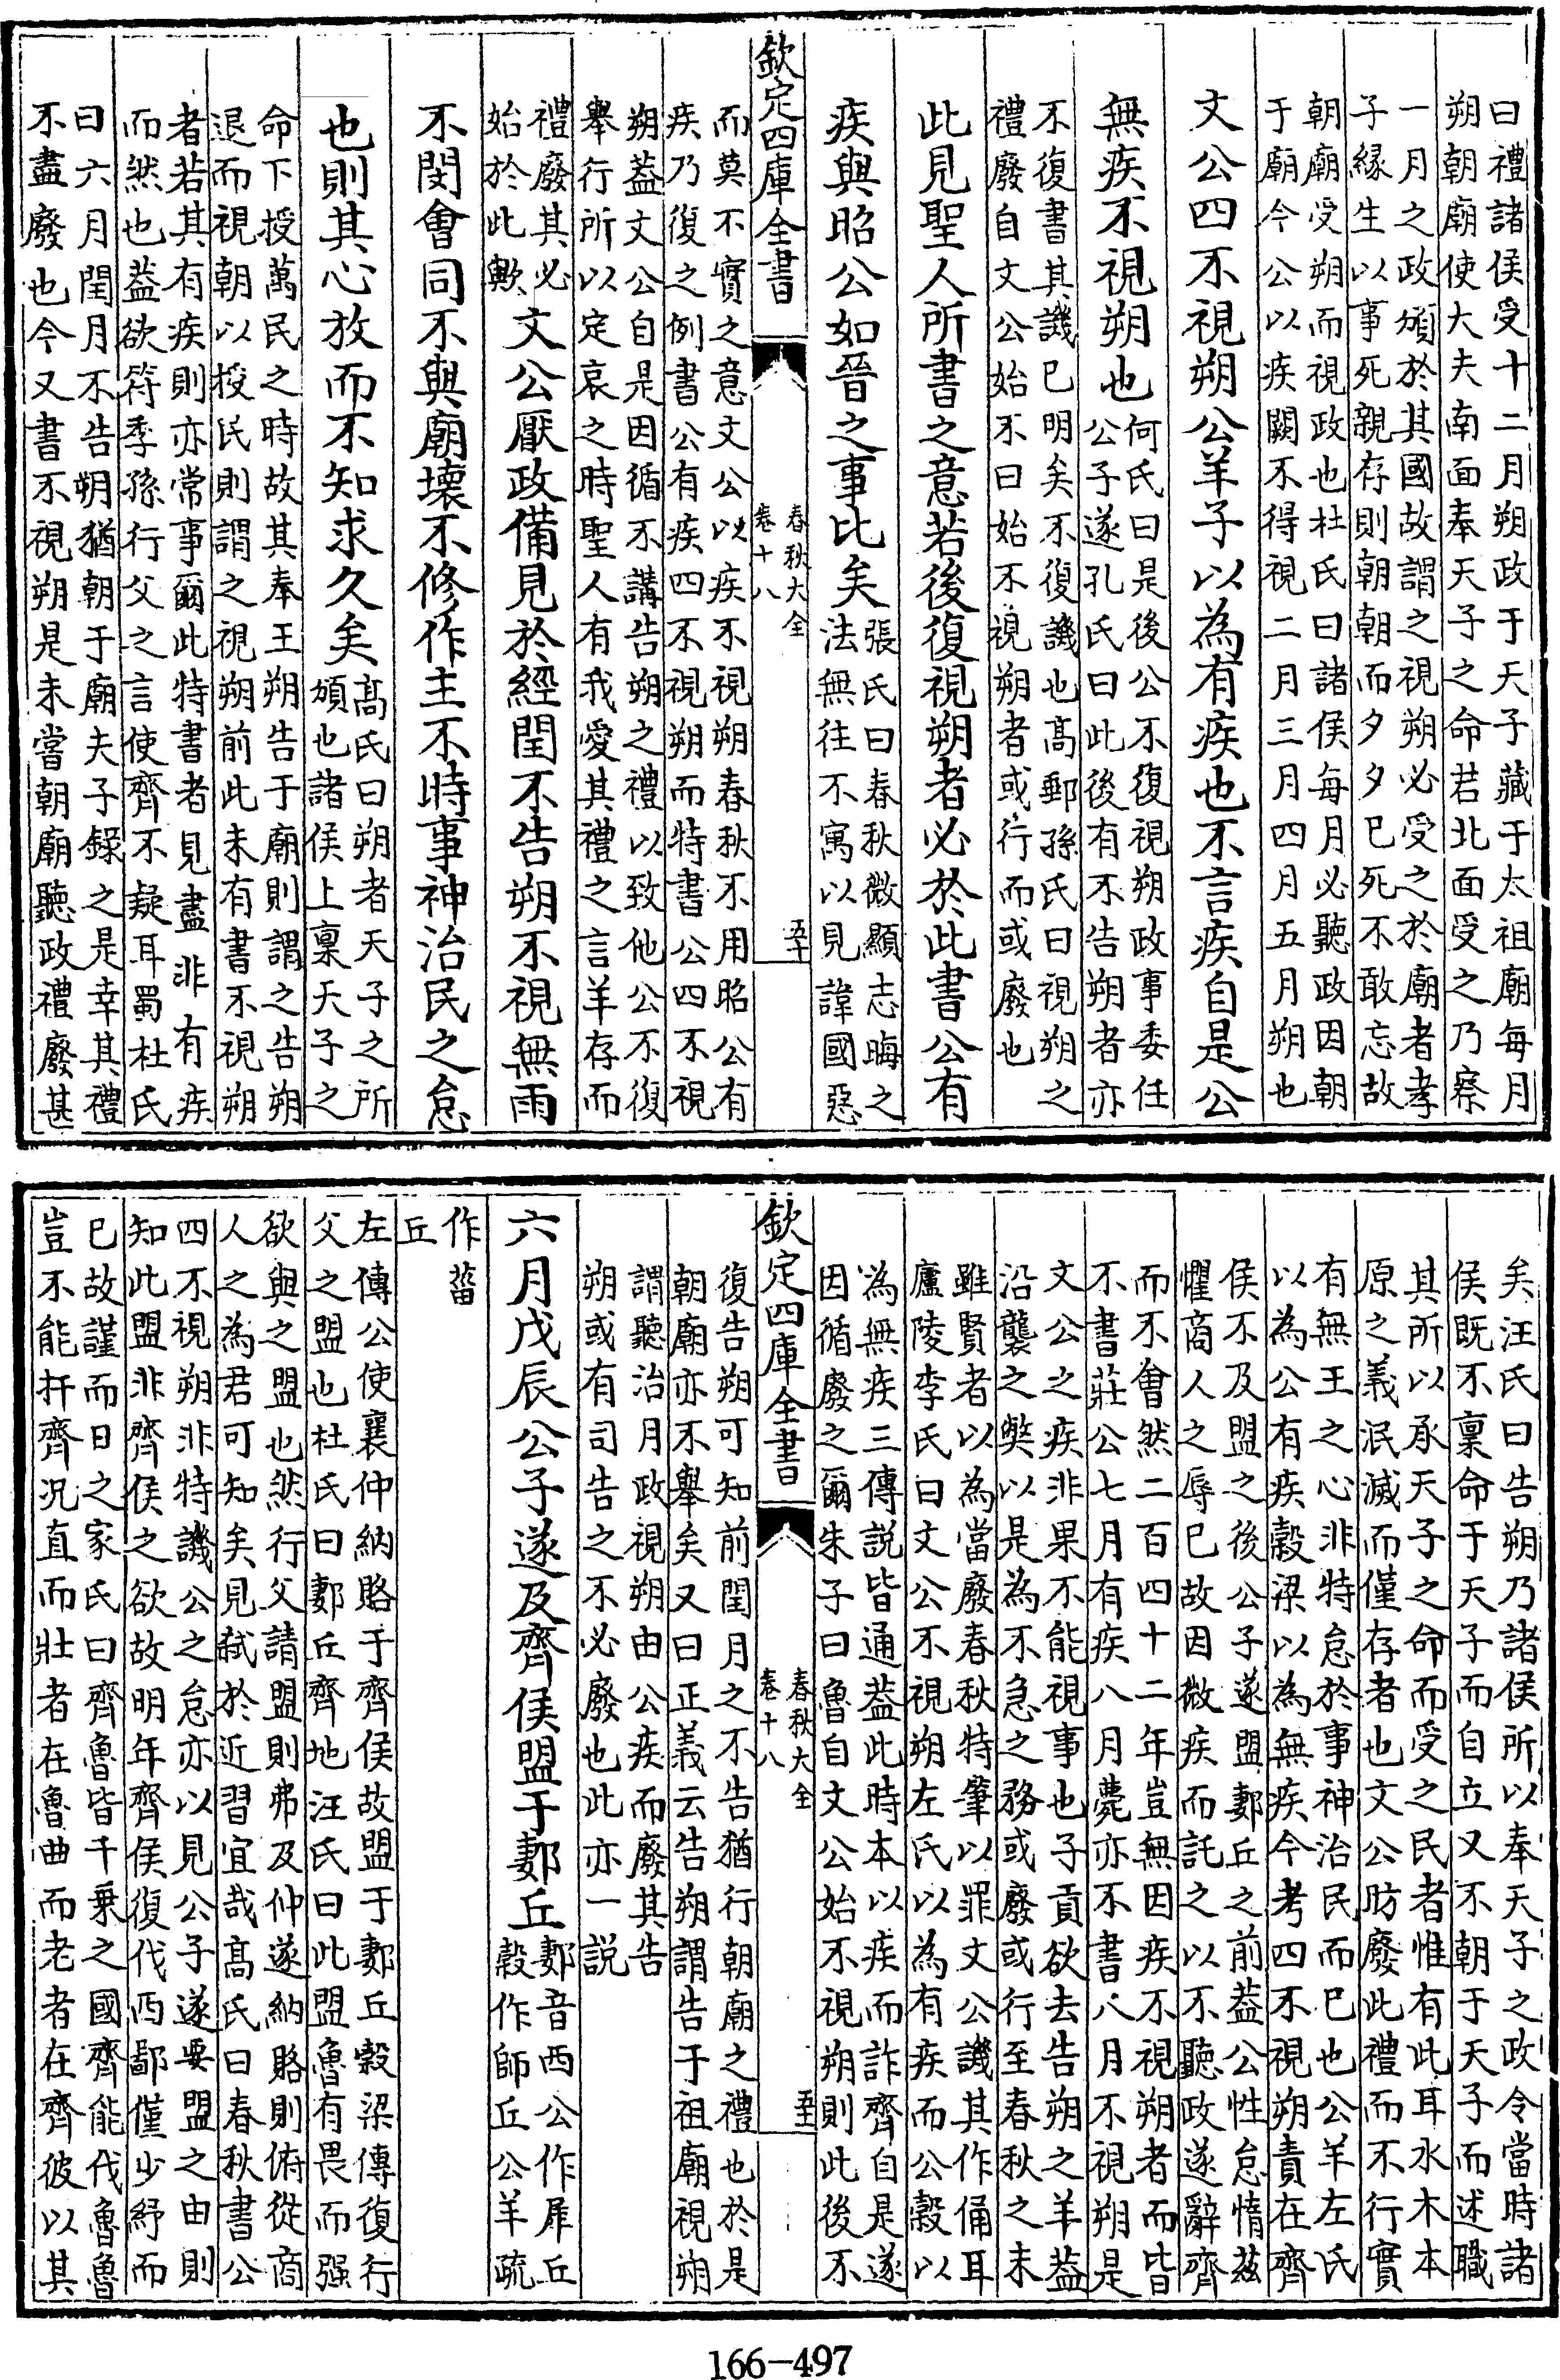 曰禮諸侯受十二月朔政于天子藏于太祖廟每月
朔朝廟使大夫南面奉天子之命君北面受之乃察
一月之政頒於其國故謂之視朔必受之於廟者孝
子縁生以事死親存則朝朝而夕夕已死不敢忘故
朝廟受朔而視政也杜氏曰諸侯每月必聽政因朝
于廟今公以疾闕不得視二月三月四月五月朔也
文公四不視朔公羊子以為有疾也不言疾自是公
無疾不視朔也
何氏曰是後公不復視朔政事委任
公子遂孔氏曰此後有不告朔者亦
不復書其譏已明矣不復譏也髙郵孫氏曰視朔之
禮廢自文公始不曰始不視朔者或行而或廢也
此見聖人所書之意若後復視朔者必於此書公有
疾與昭公如晉之事比矣
張氏曰春秋微顯志晦之
法無往不寓以見諱國惡
欽定四庫全書
春秋大全
卷十八
五十
而莫不實之意文公以疾不視朔春秋不用昭公有
疾乃復之例書公有疾四不視朔而特書公四不視
朔蓋文公自是因循不講告朔之禮以致他公不復
舉行所以定哀之時聖人有我愛其禮之言羊存而
禮廢其必
始於此歟
文公厭政備見於經閏不告朔不視無雨
不閔會同不與廟壞不修作主不時事神治民之怠
也則其心放而不知求久矣
髙氏曰朔者天子之所
頒也諸侯上稟天子之
命下授萬民之時故其奉王朔告于廟則謂之告朔
退而視朝以授民則謂之視朔前此未有書不視朔
者若其有疾則亦常事爾此特書者見盡非有疾
而然也蓋欲符季孫行父之言使齊不疑耳蜀杜氏
曰六月閏月不告朔猶朝于廟夫子錄之是幸其禮
不盡廢也今又書不視朔是未嘗朝廟聽政禮廢甚
矣汪氏曰告朔乃諸侯所以奉天子之政令當時諸
侯既不稟命于天子而自立又不朝于天子而述職
其所以承天子之命而受之民者惟有此耳水木本
原之義泯滅而僅存者也文公昉廢此禮而不行實
有無王之心非特怠於事神治民而已也公羊左氏
以為公有疾穀梁以為無疾今考四不視朔責在齊
侯不及盟之後公子遂盟郪丘之前蓋公性怠惰茲
懼商人之辱已故因微疾而託之以不聽政遂辭齊
而不會然二百四十二年豈無因疾不視朔者而皆
不書莊公七月有疾八月薨亦不書八月不視朔是
文公之疾非果不能視事也子貢欲去告朔之羊蓋
沿襲之獘以是為不急之務或廢或行至春秋之末
雖賢者以為當廢春秋特筆以罪文公譏其作俑耳
廬陵李氏曰文公不視朔左氏以為有疾而公穀以
為無疾三傳説皆通蓋此時本以疾而詐齊自是遂
因循廢之爾朱子曰魯自文公始不視朔則此後不
欽定四庫全書
春秋大全
卷十八
五十一
復告朔可知前閏月之不告猶行朝廟之禮也於是
朝廟亦不舉矣又曰正義云告朔謂告于祖廟視朔
謂聽治月政視朔由公疾而廢其告
朔或有司告之不必廢也此亦一説
六月戊辰公子遂及齊侯盟于郪丘
郪音西公作犀丘
穀作師丘公羊疏
作菑
丘
左傳公使襄仲納賂于齊侯故盟于郪丘穀梁傳復行
父之盟也杜氏曰郪丘齊地汪氏曰此盟魯有畏而强
欲與之盟也然行父請盟則弗及仲遂納賂則俯從商
人之為君可知矣見弒於近習宜哉髙氏曰春秋書公
四不視朔非特譏公之怠亦以見公子遂要盟之由則
知此盟非齊侯之欲故明年齊侯復伐西鄙僅少紓而
已故謹而日之家氏曰齊魯皆千乗之國齊能伐魯魯
豈不能扞齊况直而壯者在魯曲而老者在齊彼以其
166-497